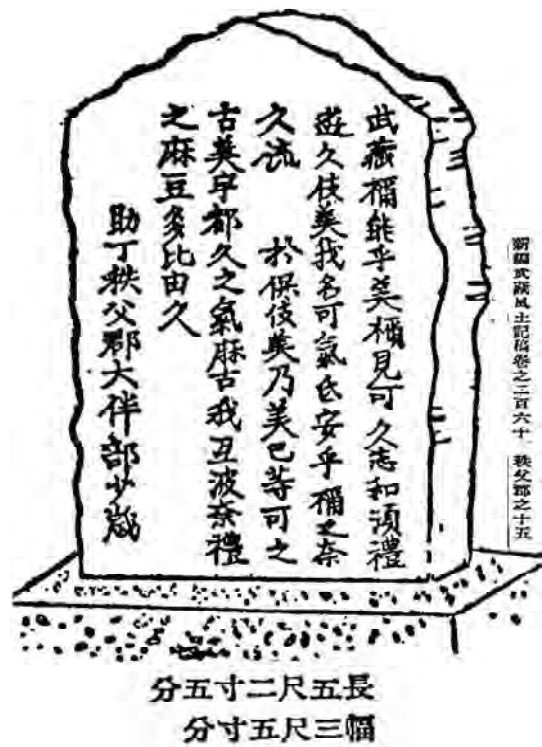 新編武蔵風土記稿卷之二百六十　秩父郡之十五
武藏禰能乎美禰見可久志和須禮
遊久伎美我名可氣氐安乎禰之奈
久流　於保伎美乃美已等可之
古美宇都久之氣麻古我弖波奈禮
之麻豆多比由久
助丁秩父郡大伴部少歳
長五尺二寸五分
幅三尺五寸分